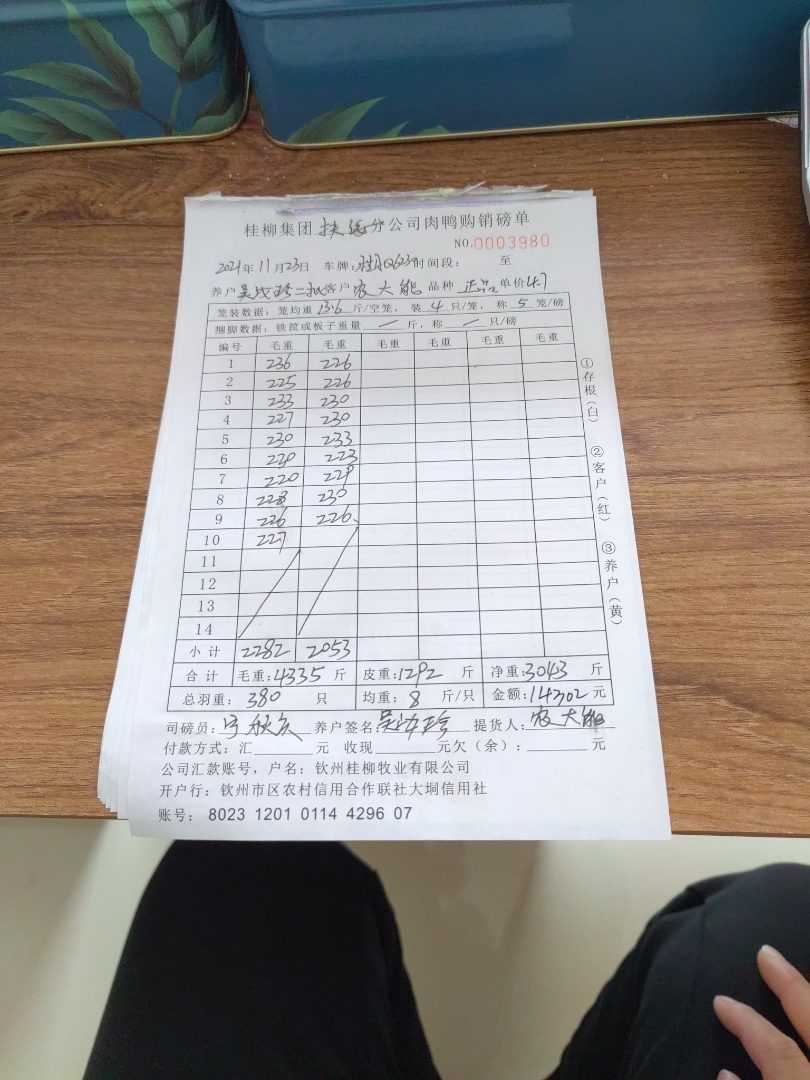 桂柳集团 扶绥分公司肉鸭购销磅单
NO.0003980
2021年11月23日 车牌: 时间段: 至
养户 二批客户 农大能 品种 正品 单价4.7
笼装数据: 笼均重 13.6 斤/空笼, 装 4 只/笼, 称 5 笼/磅
捆脚数据: 铁筐或板子重量 / 斤, 称 / 只/磅
编号 毛重 毛重 毛重 毛重 毛重 毛重
1 236 226
2 225 226
3 233 230
4 227 230
5 230 233
6 223
7 220 229
8 228 230
9 226 226
10 227
11
12
13
14
小计 2282 2053
合计 毛重:4335 斤 皮重:1292 斤 净重:3043 斤
总羽重: 380 只 均重: 8 斤/只 金额:14302 元
司磅员: 养户签名: 提货人: 农大能
付款方式: 汇 元 收现 元欠(余): 元
公司汇款账号, 户名: 钦州桂柳牧业有限公司
开户行: 钦州市区农村信用合作联社大垌信用社
账号: 8023 1201 0114 4296 07
①存根(白) ②客户(红) ③养户(黄)